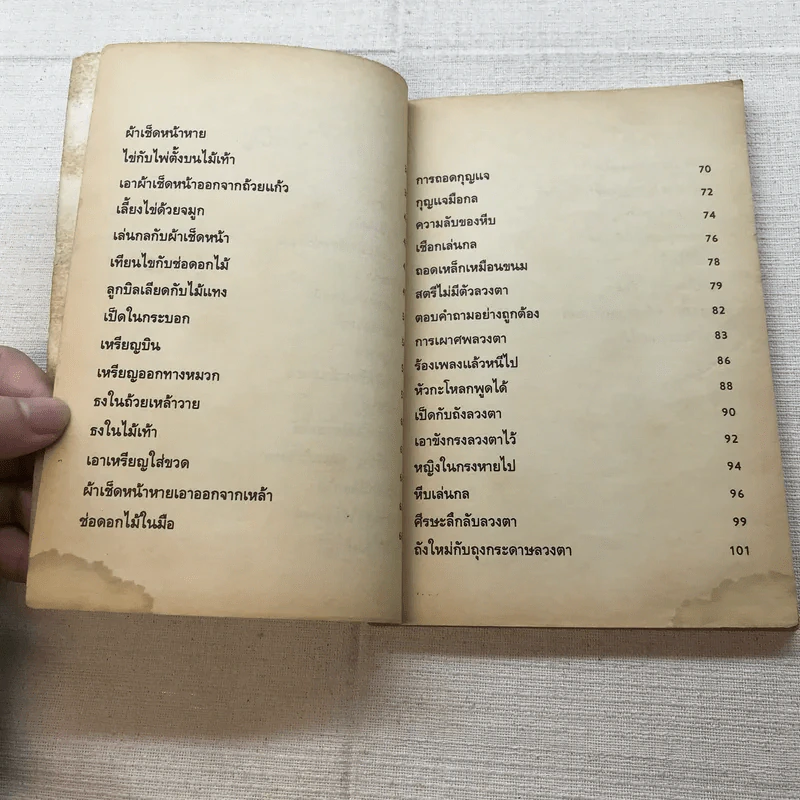 ผ้าเช็ดหน้าหาย
ไข่กับไพ่ตั้งบนไม้เท้า
เอาผ้าเช็ดหน้าออกจากถ้วยแก้ว
เลี้ยงไข่ด้วยจมูก
เล่นกลกับผ้าเช็ดหน้า
เทียนไขกับช่อดอกไม้
ลูกบิลเลียดกับไม้แทง
เป็ดในกระบอก
เหรียญบิน
เหรียญออกทางหมวก
ธงในถ้วยเหล้าวาย
ธงในไม้เท้า
เอาเหรียญใส่ขวด
ผ้าเช็ดหน้าหายเอาออกจากเหล้า
ช่อดอกไม้ในมือ
การถอดกุญแจ 70
กุญแจมือกล 72
ความลับของหีบ 74
เชือกเล่นกล 76
ถอดเหล็กเหมือนขนม 78
สตรีไม่มีตัวลวงตา 79
ตอบคำถามอย่างถูกต้อง 82
การเผาศพลวงตา 83
ร้องเพลงแล้วหนีไป 86
หัวกะโหลกพูดได้ 88
เป็ดกับถังลวงตา 90
เอาขังกรงลวงตาไว้ 92
หญิงในกรงหายไป 94
หีบเล่นกล 96
ศีรษะลึกลับลวงตา 99
ถังใหม่กับถุงกระดาษลวงตา 101